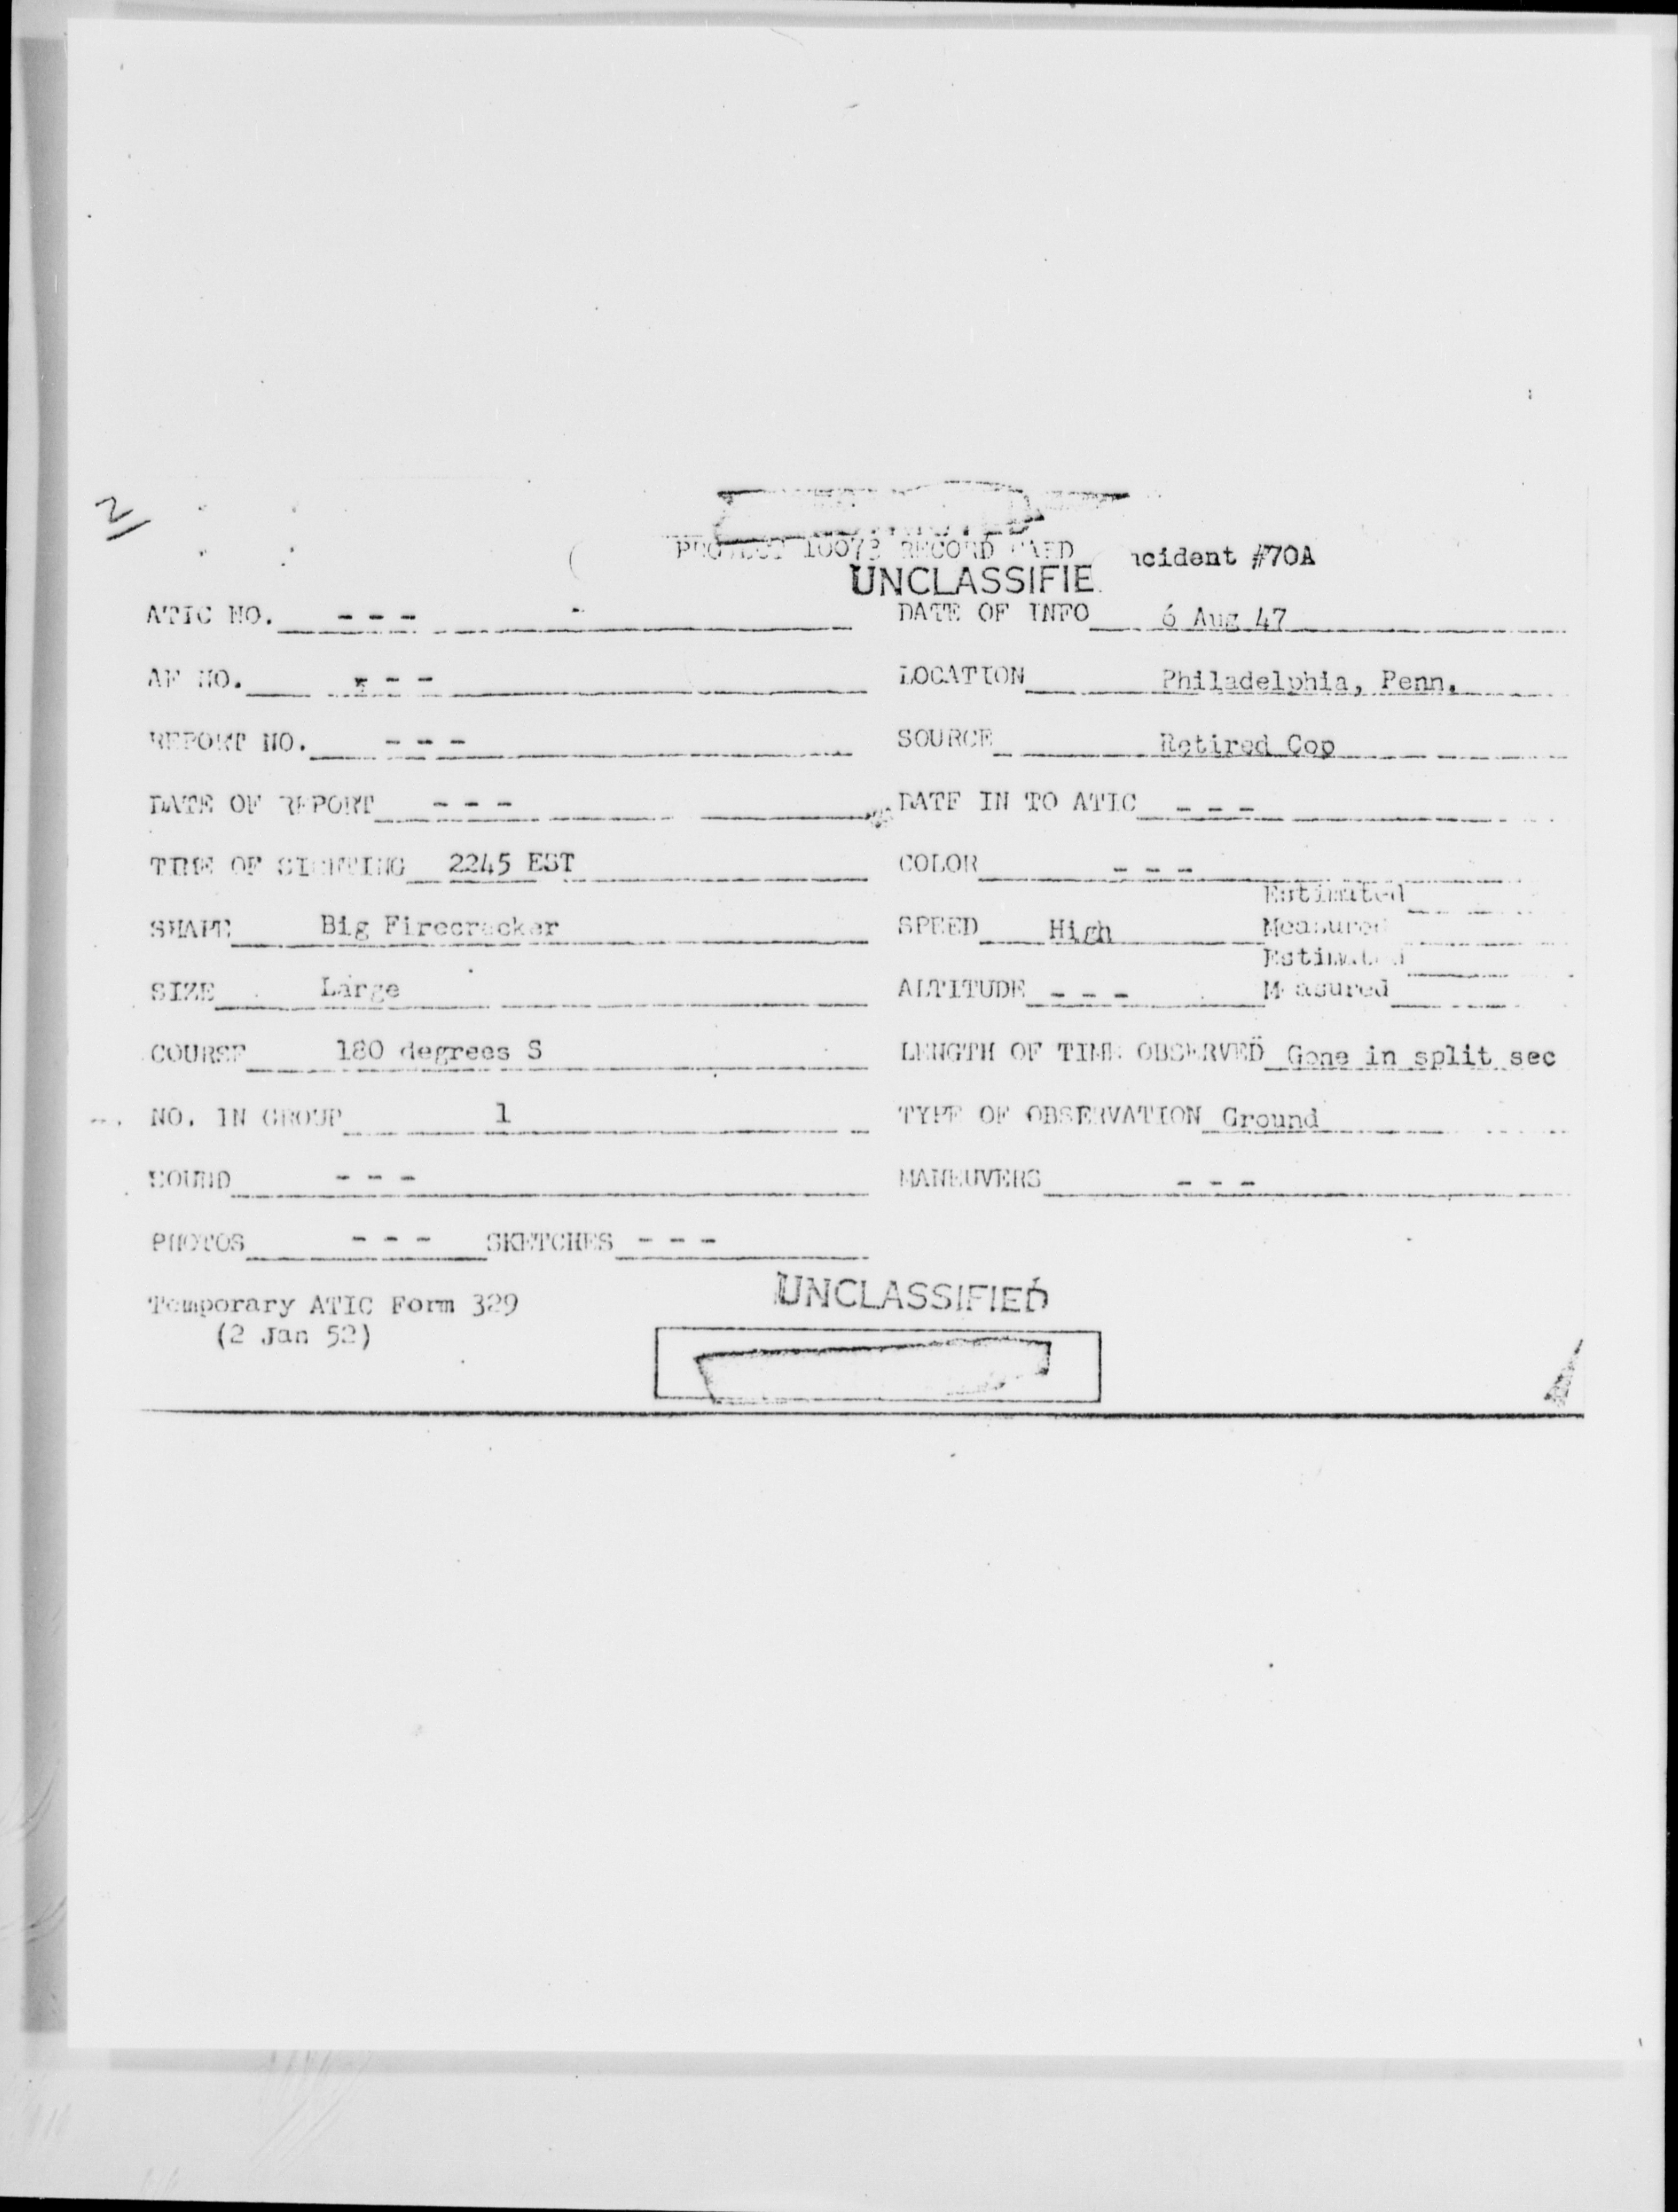 2
PROJECT 10073 RECORD CARD
ncident #70A
UNCLASSIFIE
ATIC NO. - - - DATE OF INFO 6 Aug 47
AF NO. - - - LOCATION Philadelphia, Penn.
REPORT NO. - - - SOURCE Retired Cop
DATE OF REPORT - - - DATE IN TO ATIC - - -
TIME OF SIGHTING 2245 EST COLOR - - -
Estimated
SHAPE Big Firecracker SPEED High Measured
Estimated
SIZE Large ALTITUDE - - - Measured
COURSE 180 degrees S LENGTH OF TIME OBSERVED Gone in split sec
NO. IN GROUP 1 TYPE OF OBSERVATION Ground
SOUND - - - MANEUVERS - - -
PHOTOS - - - SKETCHES - - -
Temporary ATIC Form 329
(2 Jan 52)
UNCLASSIFIED